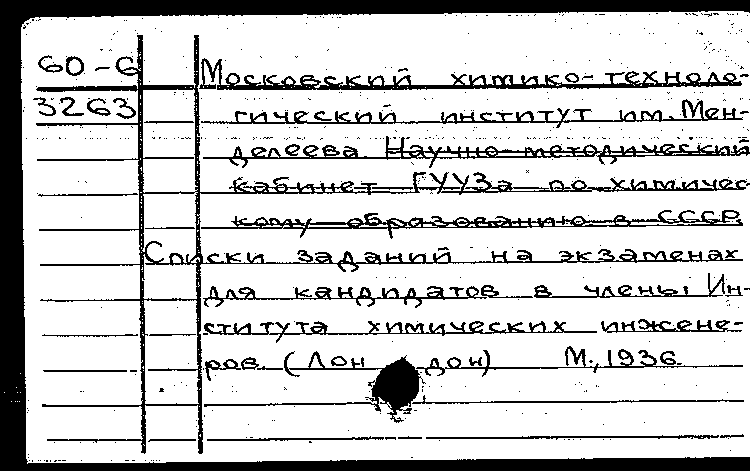 60-6 Московский химико-техноло-
3263 гический институт им. Мен-
делеева. Научно-методический
кабинет ГУУЗа по химичес
кому образованию в СССР.
Списки заданий на экзаменах
для кандидатов в члены Ин-
ститута химических инжене-
ров. (Лондон) М., 1936